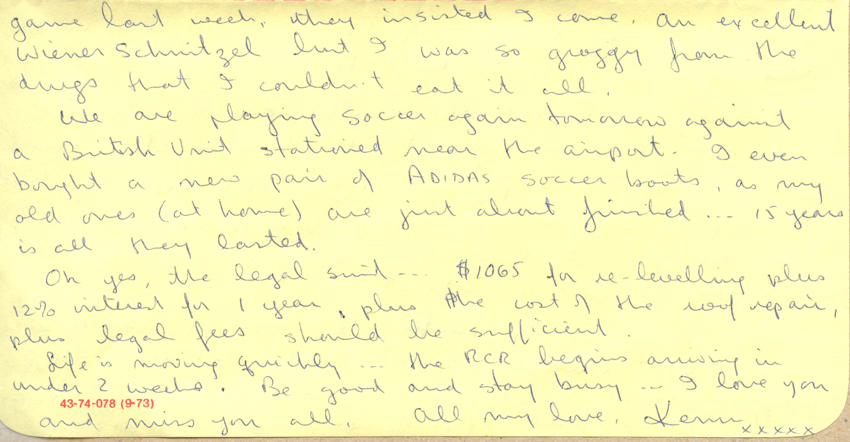 game last week, they insisted I come. An excellent
Wiener Schnitzel but I was so groggy from the
drugs that I couldn't eat it all.
We are playing soccer again tomorrow against
a British Unit stationed near the airport. I even
bought a new pair of ADIDAS soccer boots, as my
old ones (at home) are just about finished... 15 years
is all they lasted.
Oh yes, the legal suit... $1065 for re-levelling plus
12% interest for 1 year, plus the cost of the roof repair,
plus legal fees should be sufficient.
Life is moving quickly... the RCR begins arriving in
under 2 weeks. Be good and stay busy... I love you
43-74-078 (9-73)
and miss you all. All my love, Kenn
xxxxx